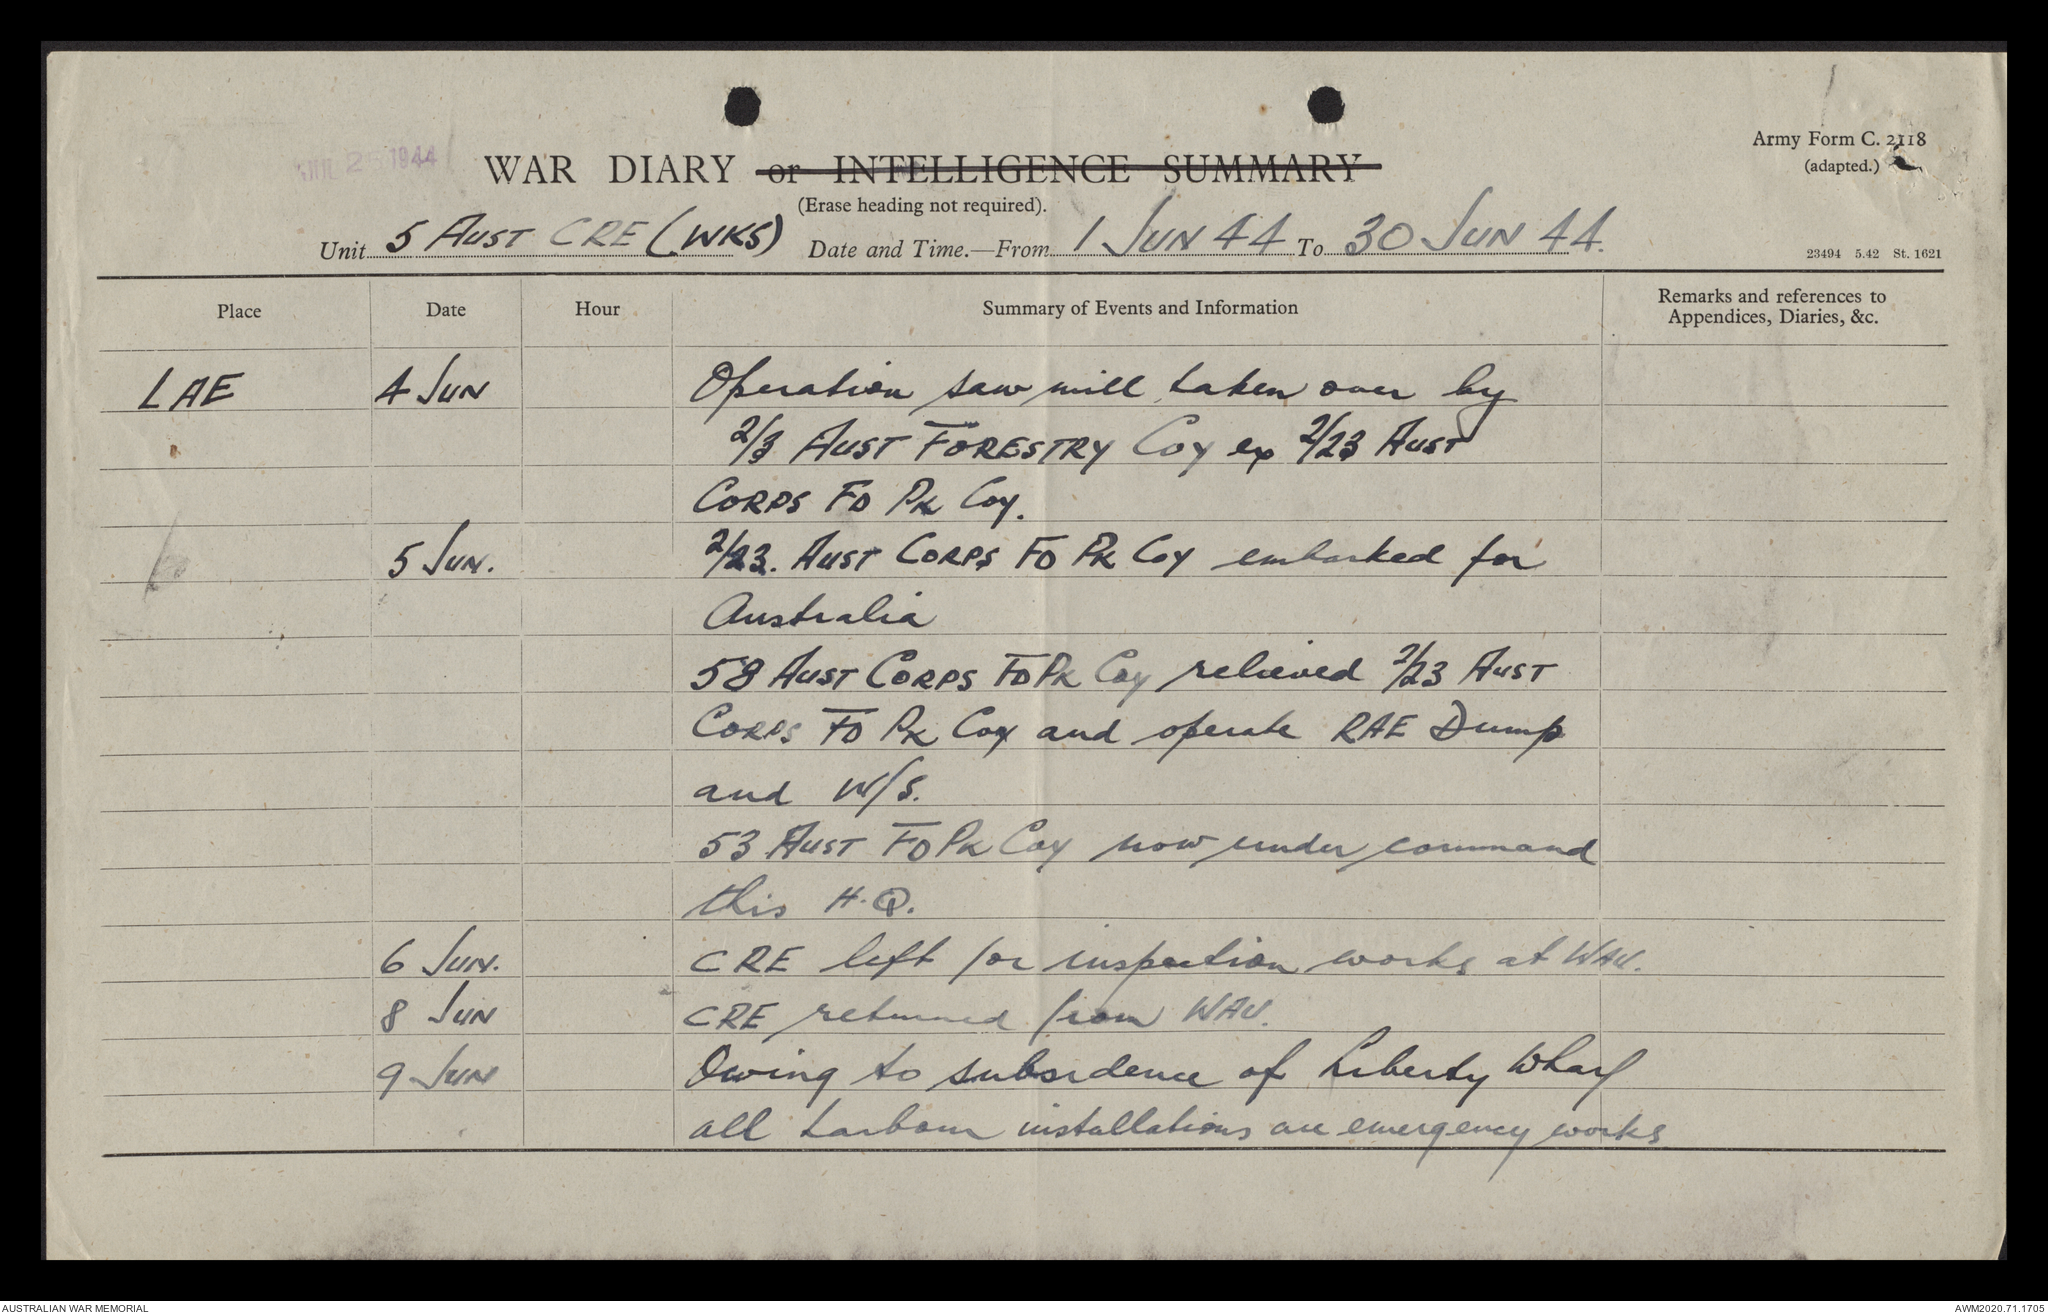 JUL 25 1944
Army Form C. 2118
WAR DIARY or INTELLIGENCE SUMMARY
(adapted.)
(Erase heading not required).
Unit 5 AUST CRE (WKS) Date and Time.—From 1 JUN 44 To 30 JUN 44.
23494 5.42 St. 1621
Place Date Hour Summary of Events and Information Remarks and references to
Appendices, Diaries, &c.
LAE 4 JUN Operation saw mill taken over by
2/3 AUST FORESTRY COY ex 2/23 AUST
CORPS FD PK Coy.
5 JUN. 2/23. AUST CORPS FD PK COY embarked for
Australia
58 AUST CORPS FD PK Coy relieved 2/23 AUST
CORPS FD PK Coy and operate RAE Dump
and W/S.
53 AUST FD PK Coy now under command
this H.Q.
6 JUN. CRE left for inspection works at WAU.
8 JUN CRE returned from WAU.
9 JUN Owing to subsidence of Liberty Wharf
all harbour installations are emergency works
AUSTRALIAN WAR MEMORIAL AWM2020.71.1705